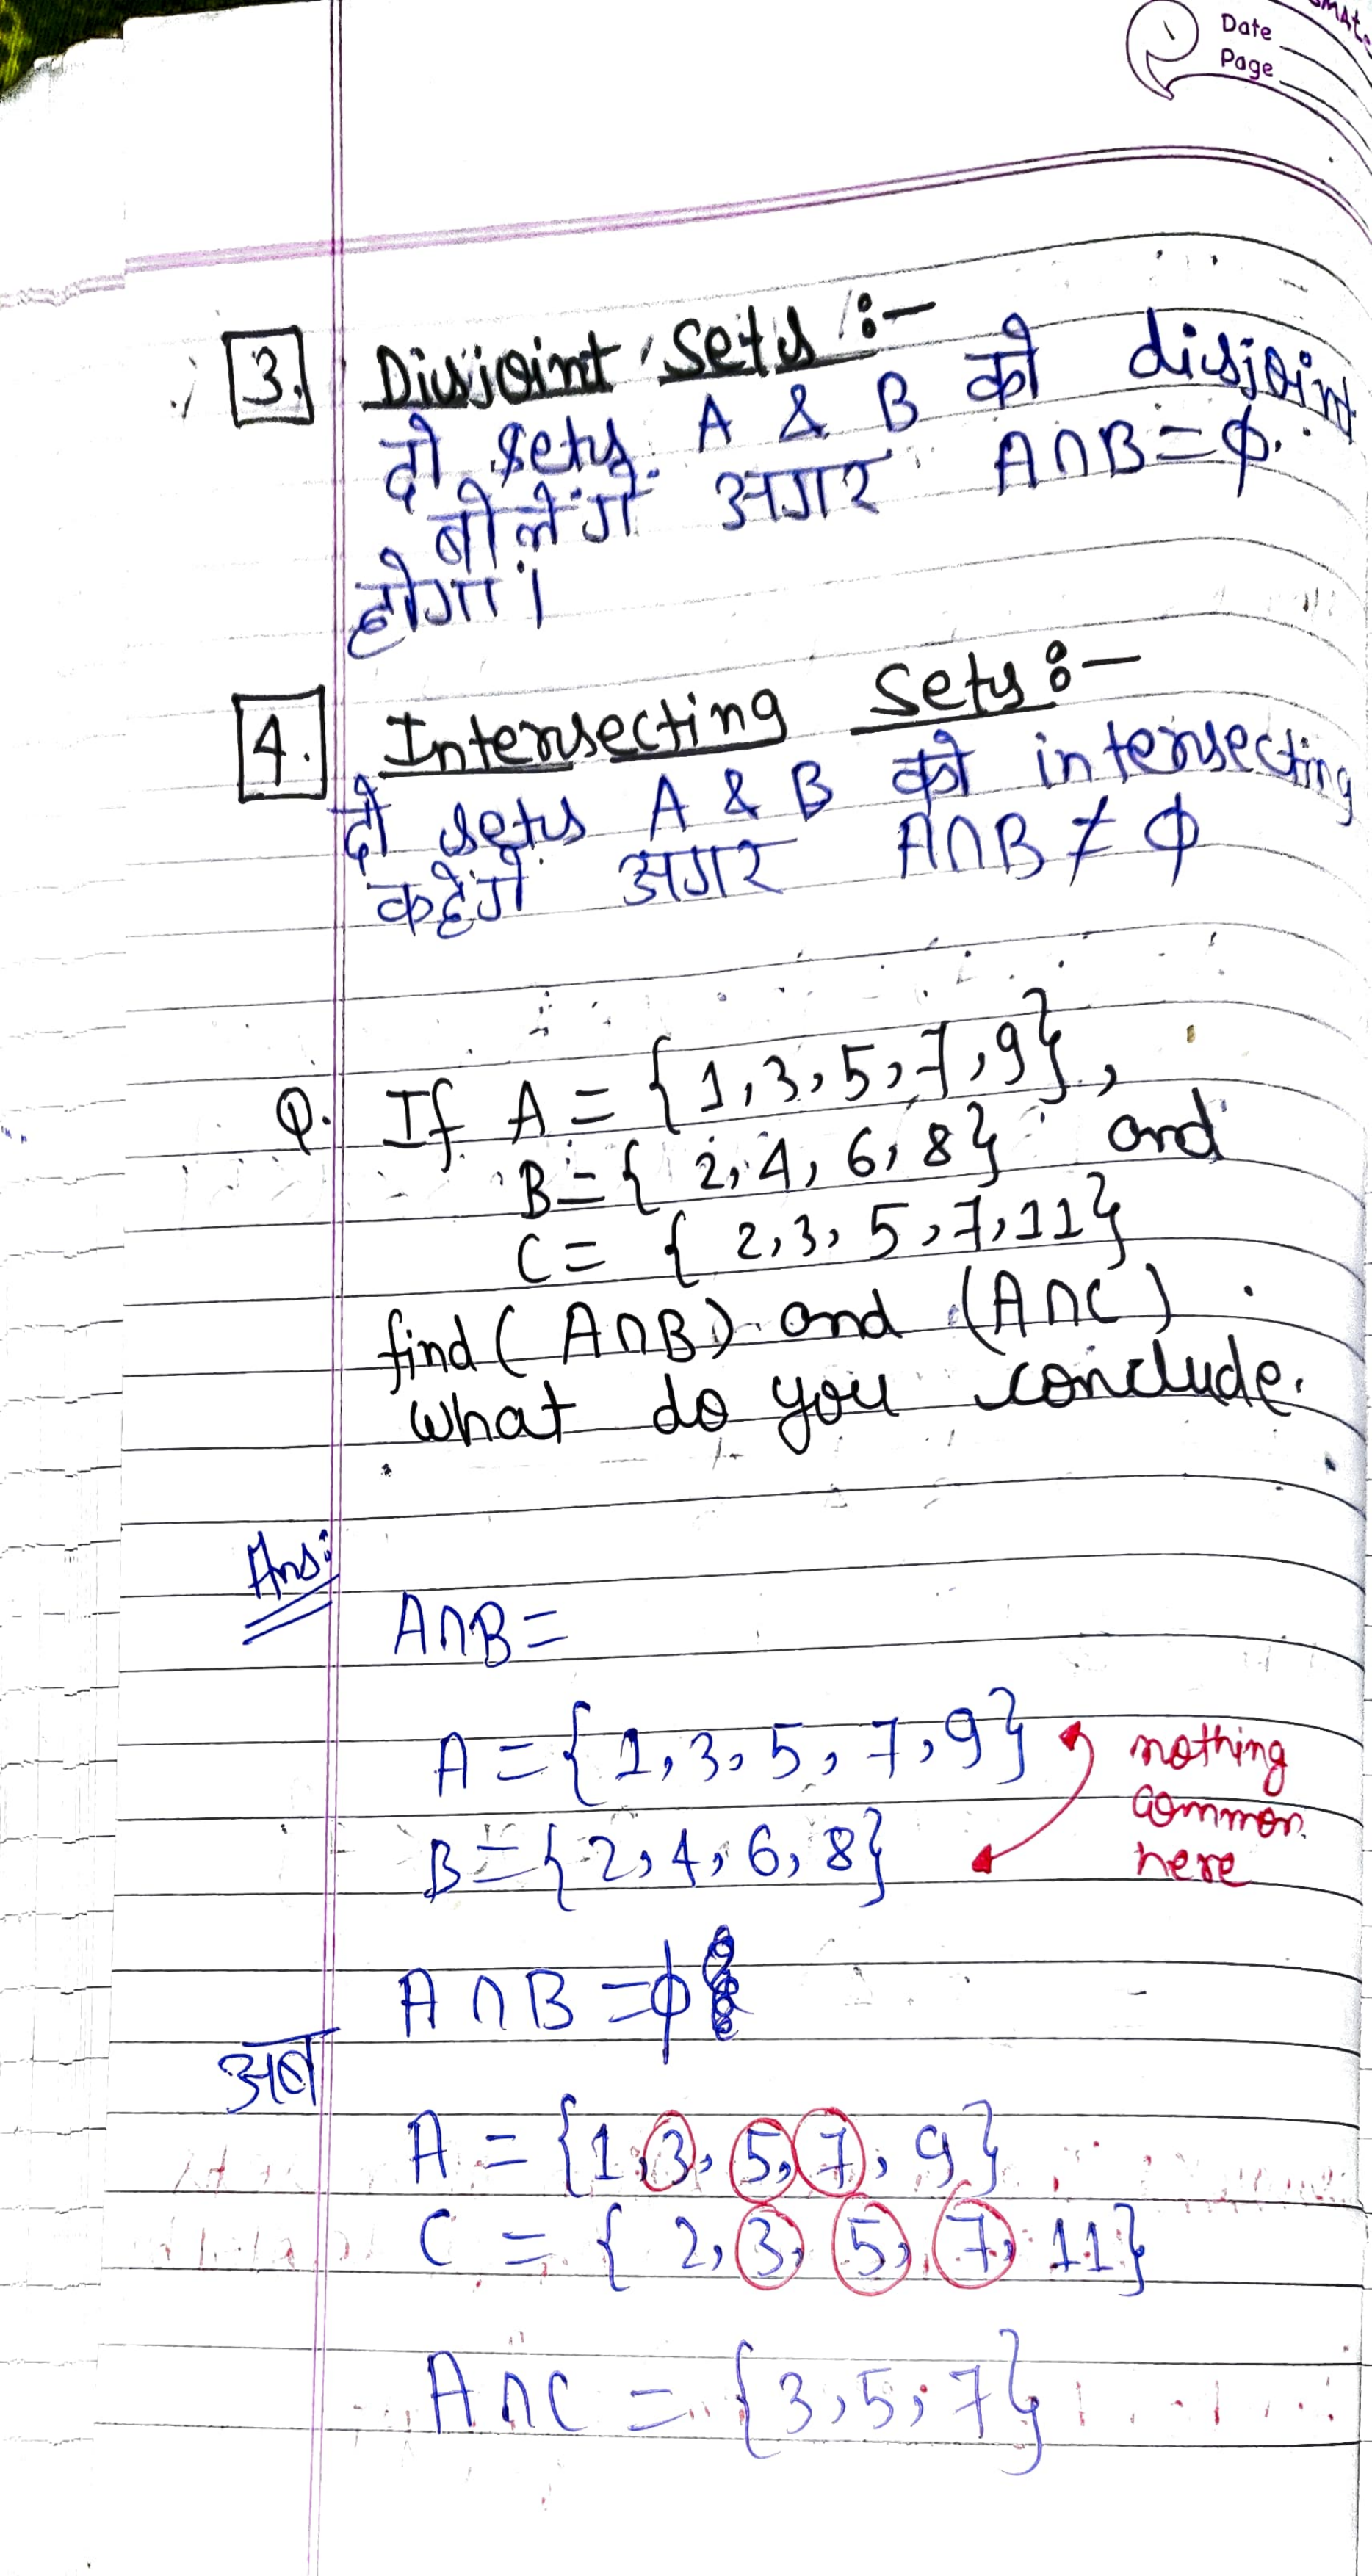 Date
Page
3. Disjoint Sets :-
दो sets A & B को disjoint
बोलेंगे अगर A∩B=ϕ.
होगा।
4. Intersecting Sets :-
दो sets A & B को intersecting
कहेंगे अगर A∩B ≠ ϕ
Q. If A = {1,3,5,7,9},
B = {2,4,6,8} and
C = {2,3,5,7,11}
find (A∩B) and (A∩C)
what do you conclude.
Ans:
A∩B=
A = {1,3,5,7,9} nothing
common
B = {2,4,6,8} here
A∩B = ϕ
अब
A = {1,3,5,7,9}
C = {2,3,5,7,11}
A∩C = {3,5,7}